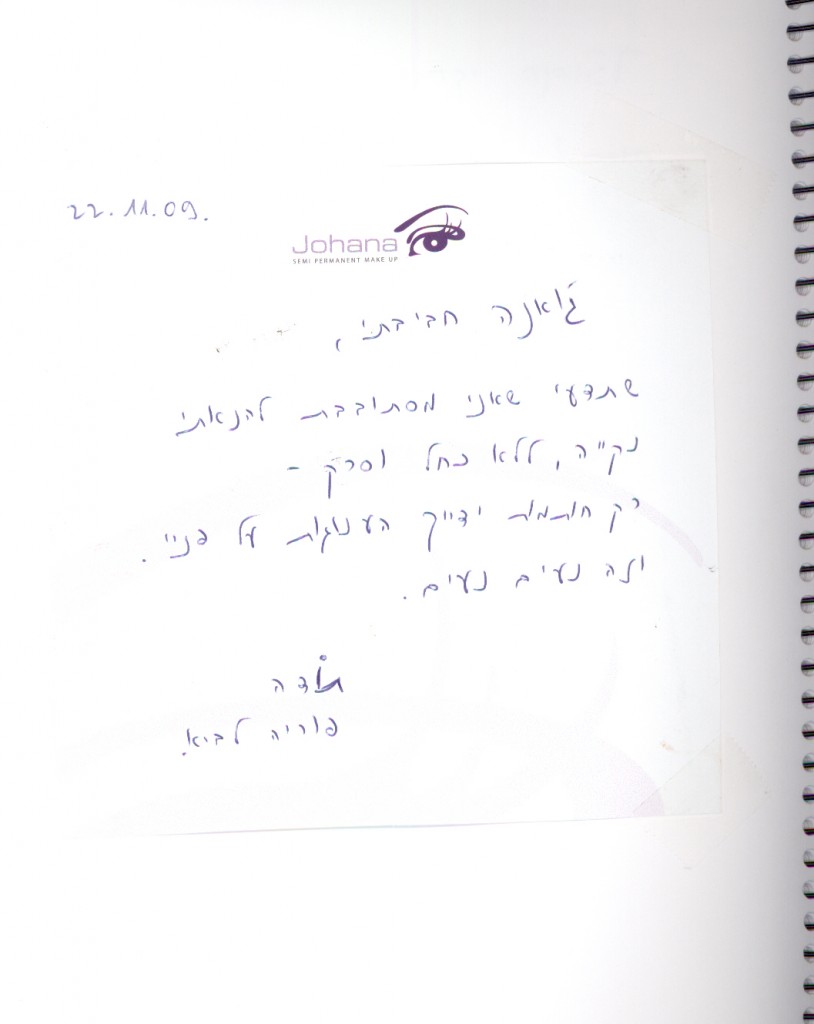 22.11.09.
Johana
SEMI PERMANENT MAKE UP
ג'ואנה חביבתי,
שתדעי שאני מסתובבת להנאתי
נקייה, ללא כחל וסרק -
רק חותמות ידייך הענוגות על פניי.
וזה נעים נעים.
תודה
פוריה לביא.